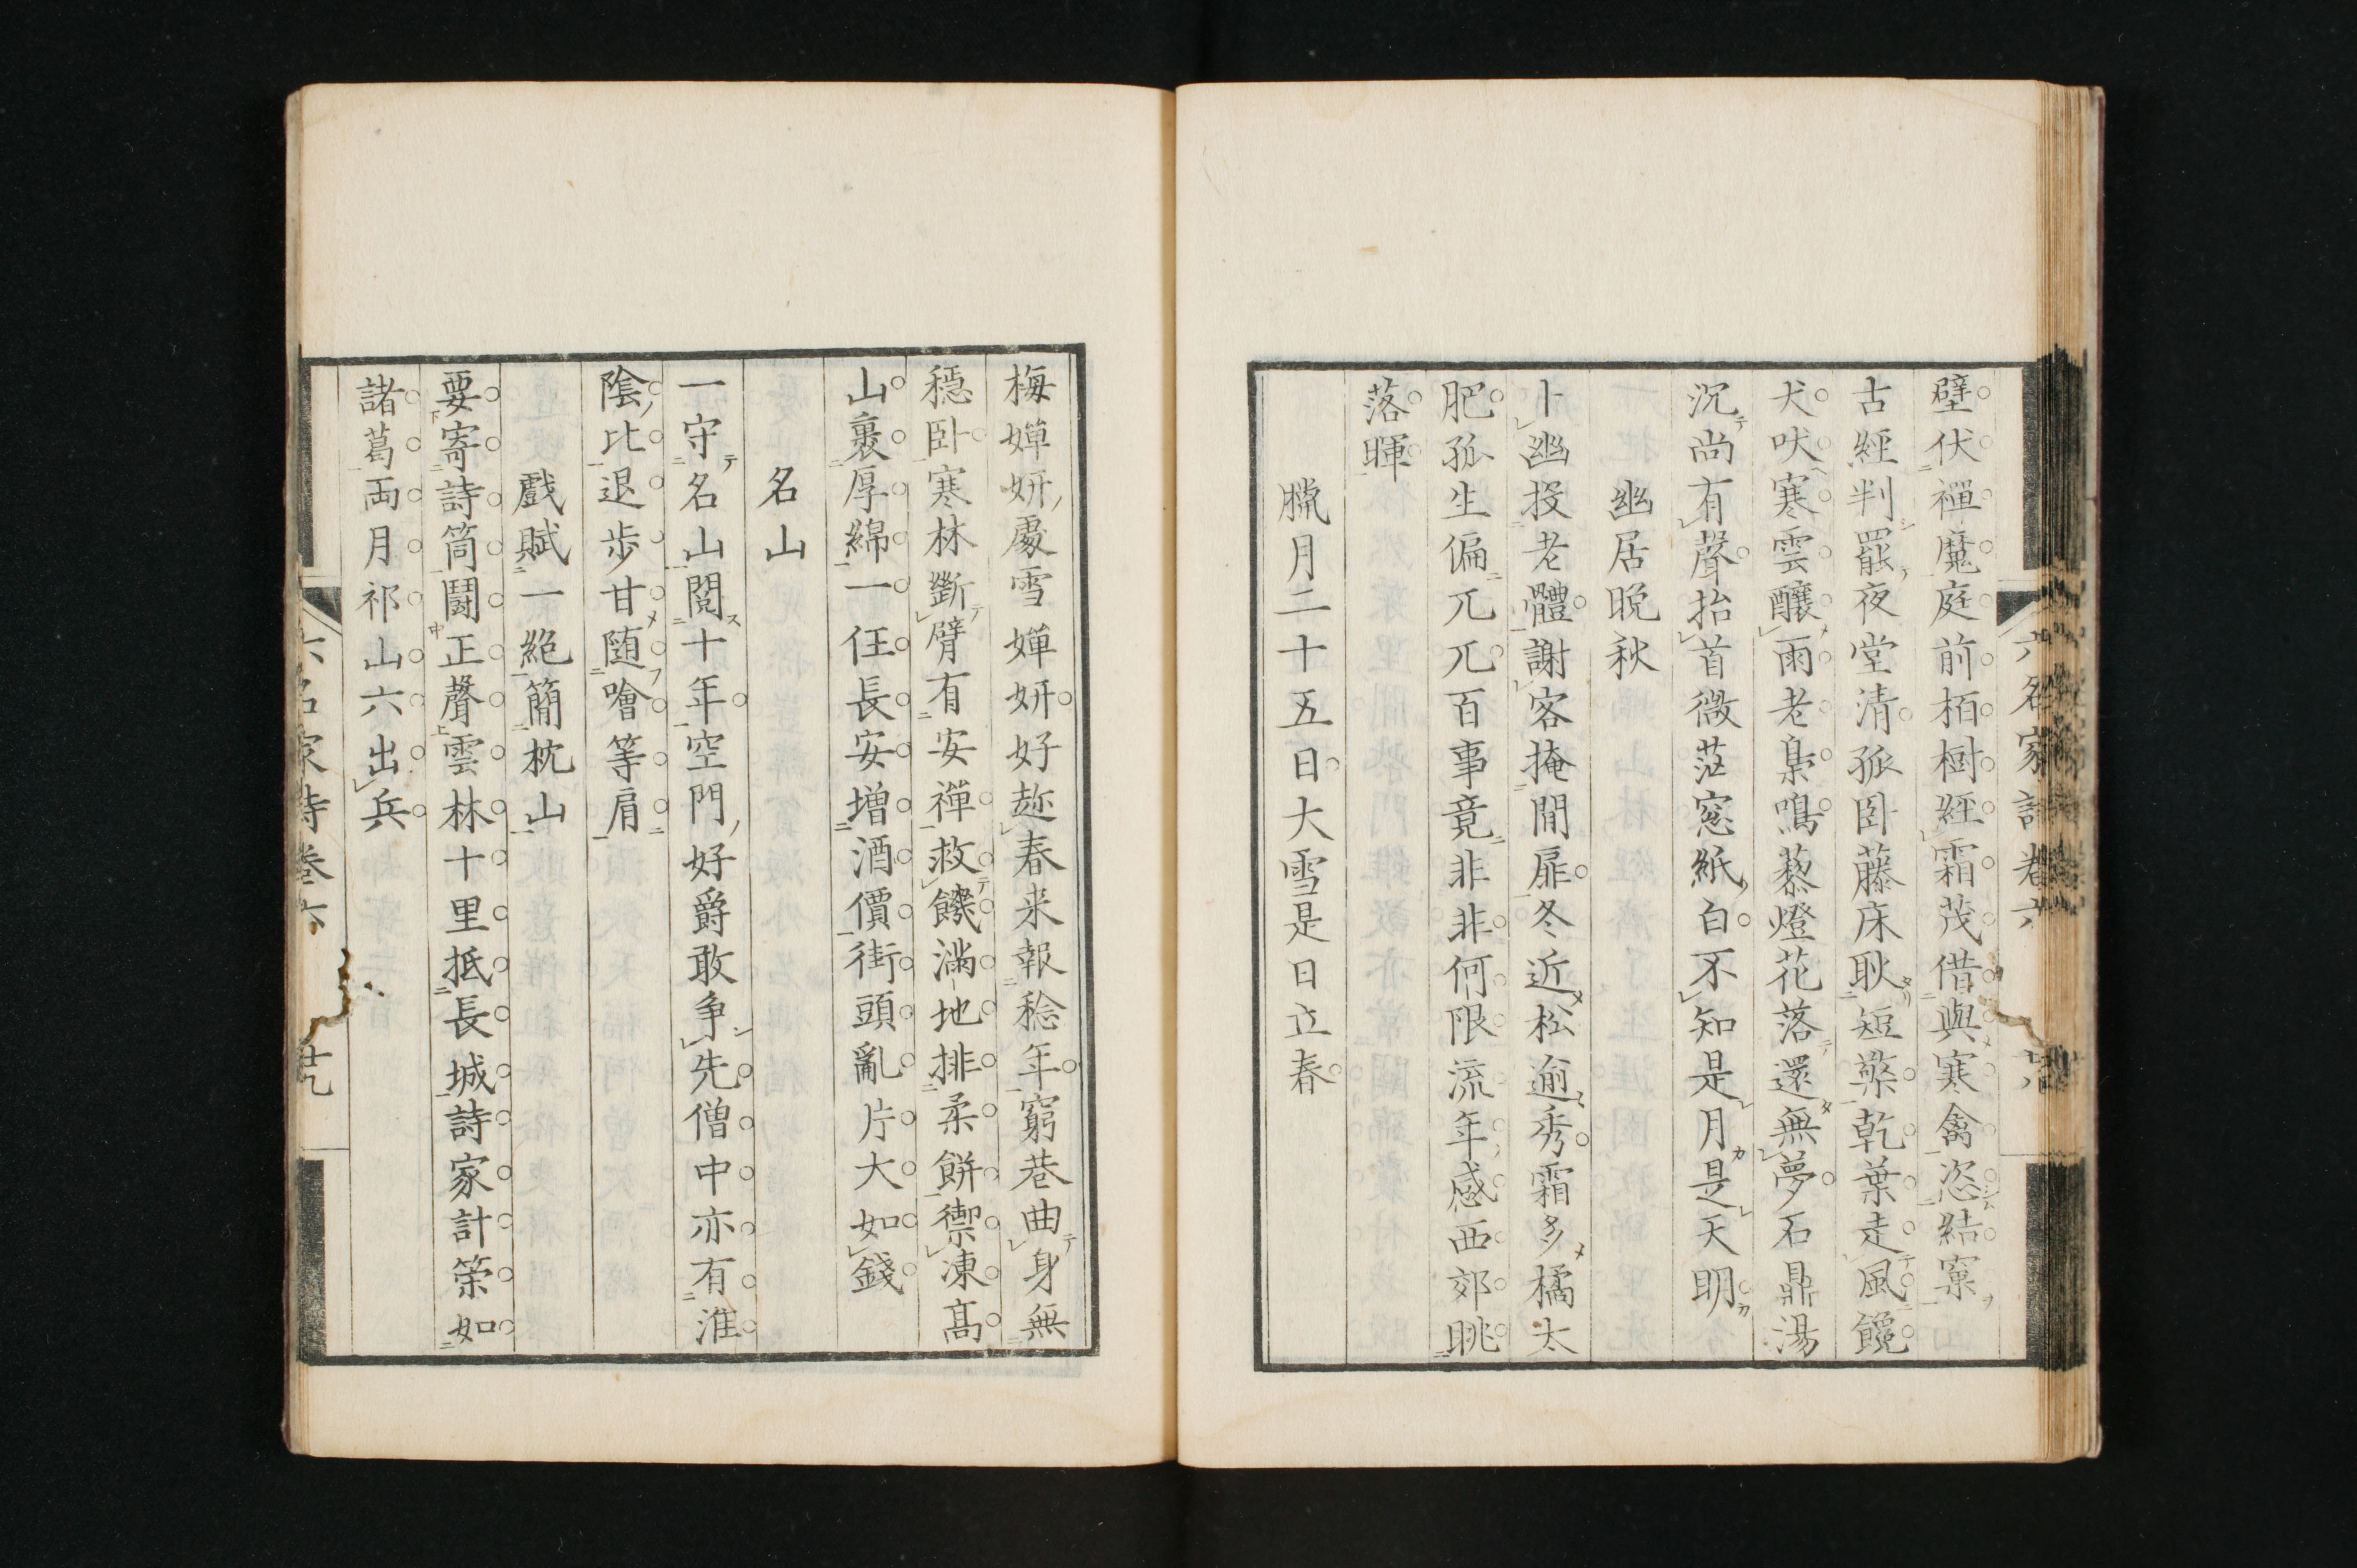 壁伏禪魔庭前栢樹經霜茂借與寒禽恣結窠
古經判罷夜堂清孤臥藤床耿短檠乾葉走風饞
犬吠寒雲釀雨老梟鳴藜燈花落還無夢石鼎湯
沉尚有聲抬首微茫窓紙白不知是月是天明
幽居晚秋
卜幽投老體謝客掩閒扉冬近松逾秀霜多橘太
肥孤生偏兀兀百事竟非非何限流年感西郊眺
落暉
臘月二十五日大雪是日立春
梅嬋妍處雪嬋妍好趂春来報稔年窮巷曲身無
穩臥寒林斷臂有安禪救饑滿地排柔餅禦凍高
山裹厚綿一任長安增酒價街頭亂片大如錢
名山
一守名山閱十年空門好爵敢争先僧中亦有淮
陰比退步甘随噲等肩
戲賦一絕簡枕山
要寄詩筒鬪正聲雲林十里抵長城詩家計策如
諸葛両月祁山六出兵
六名家詩卷六